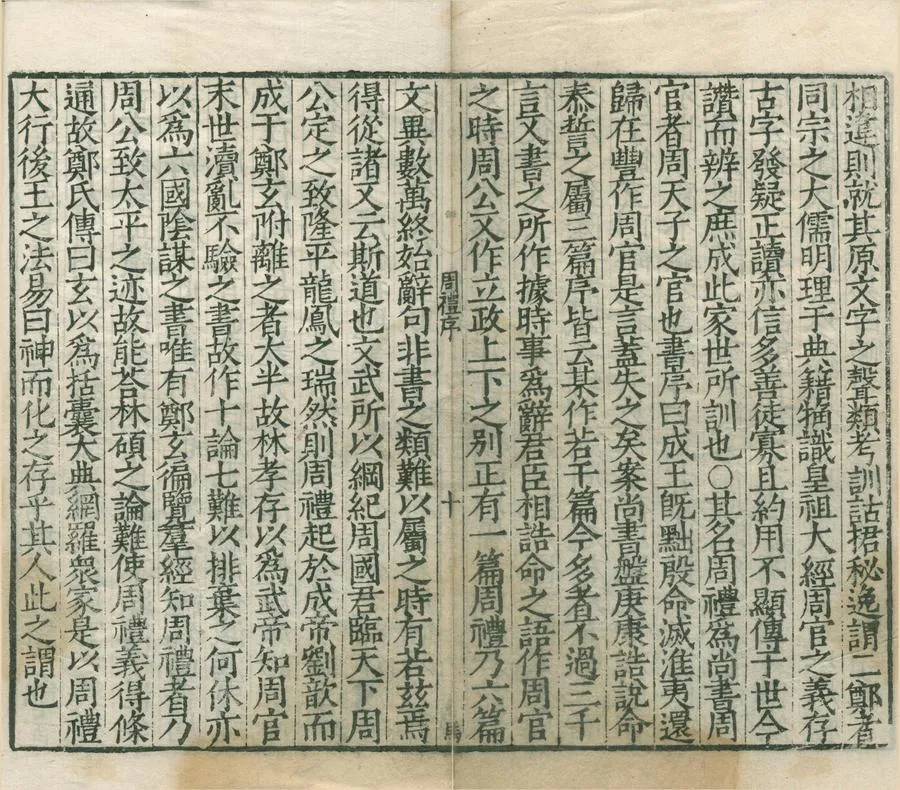 相違則就其原文字之聲類考訓詁捃秘逸謂二鄭者
同宗之大儒明理于典籍觕識皇祖大經周官之義存
古字發疑正讀亦信多善徒寡且約用不顯傳于世今
讚而辨之庶成此家世所訓也○其名周禮爲尚書周
官者周天子之官也書序曰成王旣黜殷命滅淮夷還
歸在豐作周官是言蓋失之矣案尚書盤庚康誥說命
泰誓之屬三篇序皆云某作若干篇今多者不過三千
言又書之所作據時事爲辭君臣相誥命之語作周官
之時周公又作立政上下之别正有一篇周禮乃六篇
周禮序
十
文異數萬終始辭句非書之類難以屬之時有若茲焉
得從諸又云斯道也文武所以綱紀周國君臨天下周
公定之致隆平龍鳳之瑞然則周禮起於成帝劉歆而
成于鄭玄附離之者大半故林孝存以爲武帝知周官
末世瀆亂不驗之書故作十論七難以排棄之何休亦
以爲六國陰謀之書唯有鄭玄徧覽羣經知周禮者乃
周公致太平之迹故能荅林碩之論難使周禮義得條
通故鄭氏傳曰玄以爲括囊大典網羅衆家是以周禮
大行後王之法易曰神而化之存乎其人此之謂也